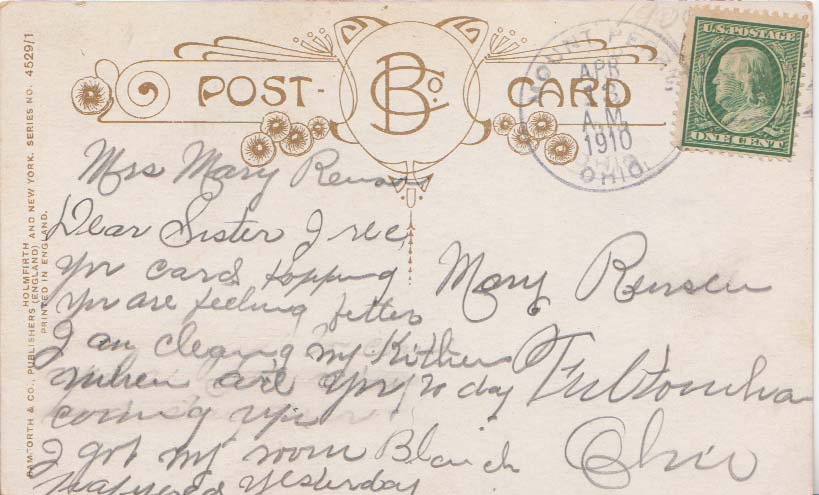 POST- BCo. CARD
MOUNT
APR
A.M.
1910
OHIO.
U.S. POSTAGE
ONE CENT
BAMFORTH & CO., PUBLISHERS (ENGLAND) AND NEW YORK. SERIES NO. 4529/1
HOLMFIRTH
PRINTED IN ENGLAND.
Mrs Mary
Dear Sister I rec
yr card hopping
yr are feeling better
I am cleaning my Kitchen
to day
when are yr
coming up
I got my room
yesterday
Mary
Fultonham
Ohio